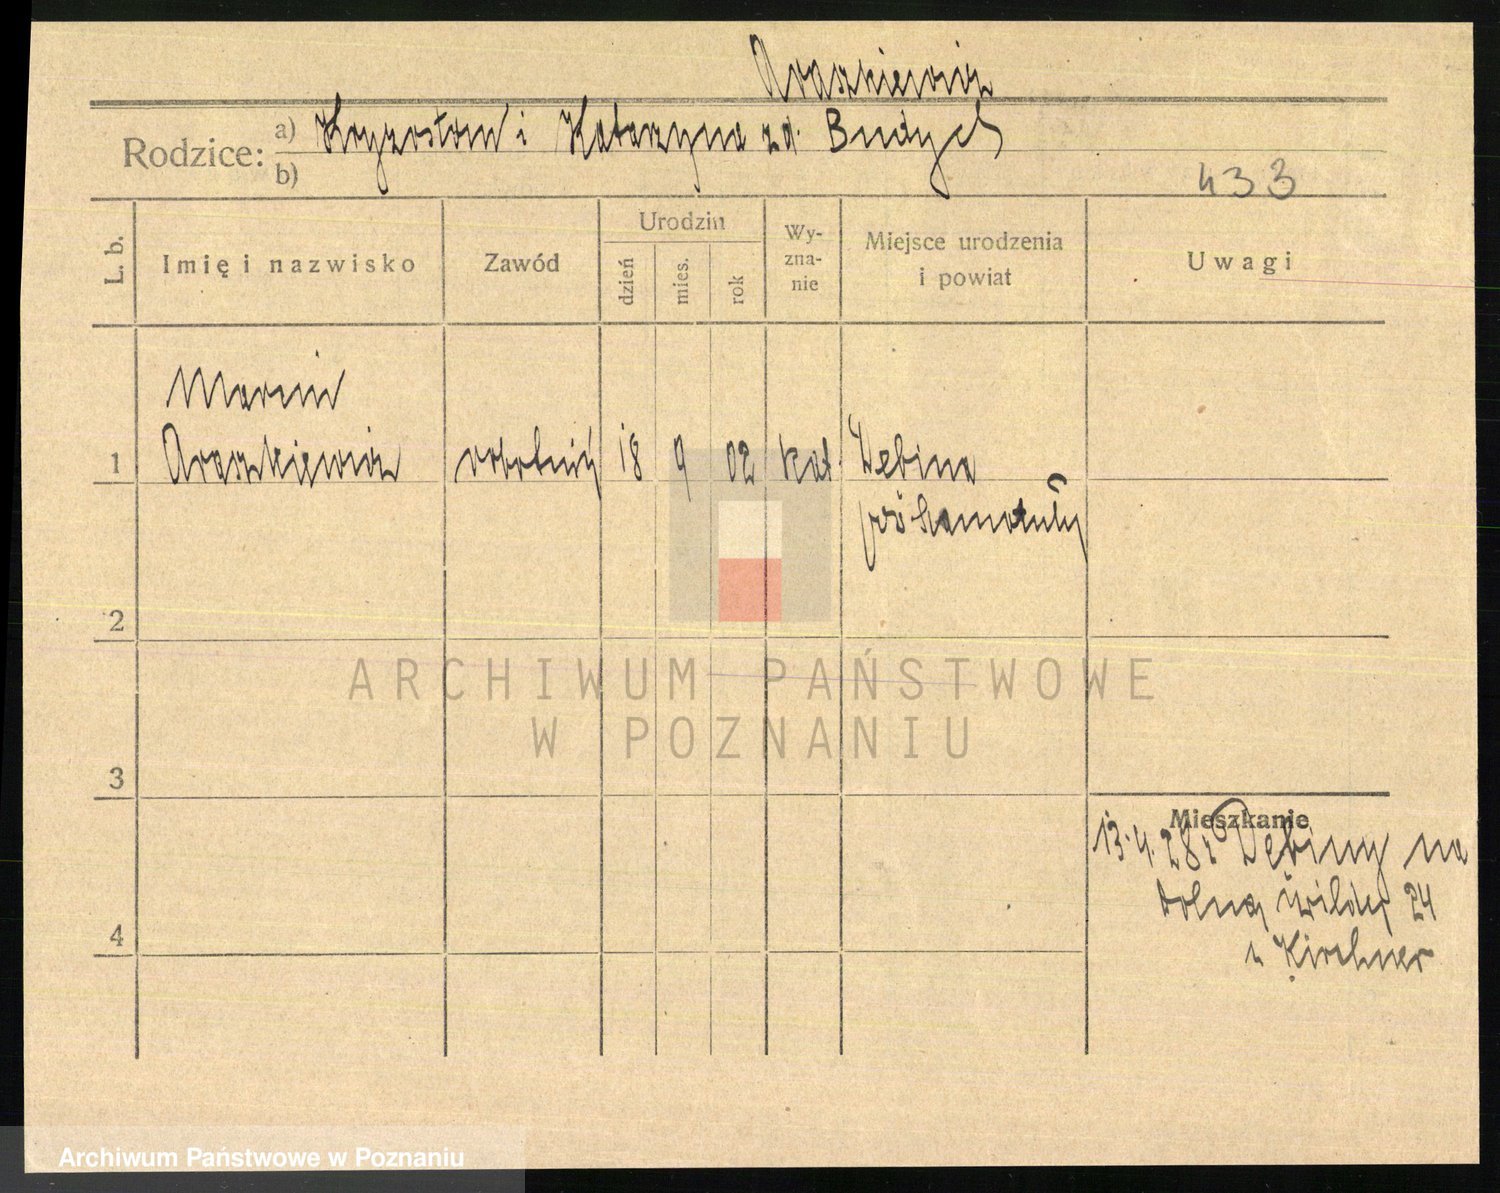 Araszkiewicz
Rodzice: a) Chryzostom i Katarzyna zd. Budych
b)
433
L. b. Imię i nazwisko Zawód Urodzin dzień mies. rok Wy-zna-nie Miejsce urodzenia i powiat Uwagi
Marcin
1 Araszkiewicz robotnik 18 9 02 kat. Debina
pow Szamotuły
2
3
Mieszkanie
13.4.28 z Debiny na
4 dolną wildę 24
u Kirchner
ARCHIWUM PAŃSTWOWE
W POZNANIU
Archiwum Państwowe w Poznaniu